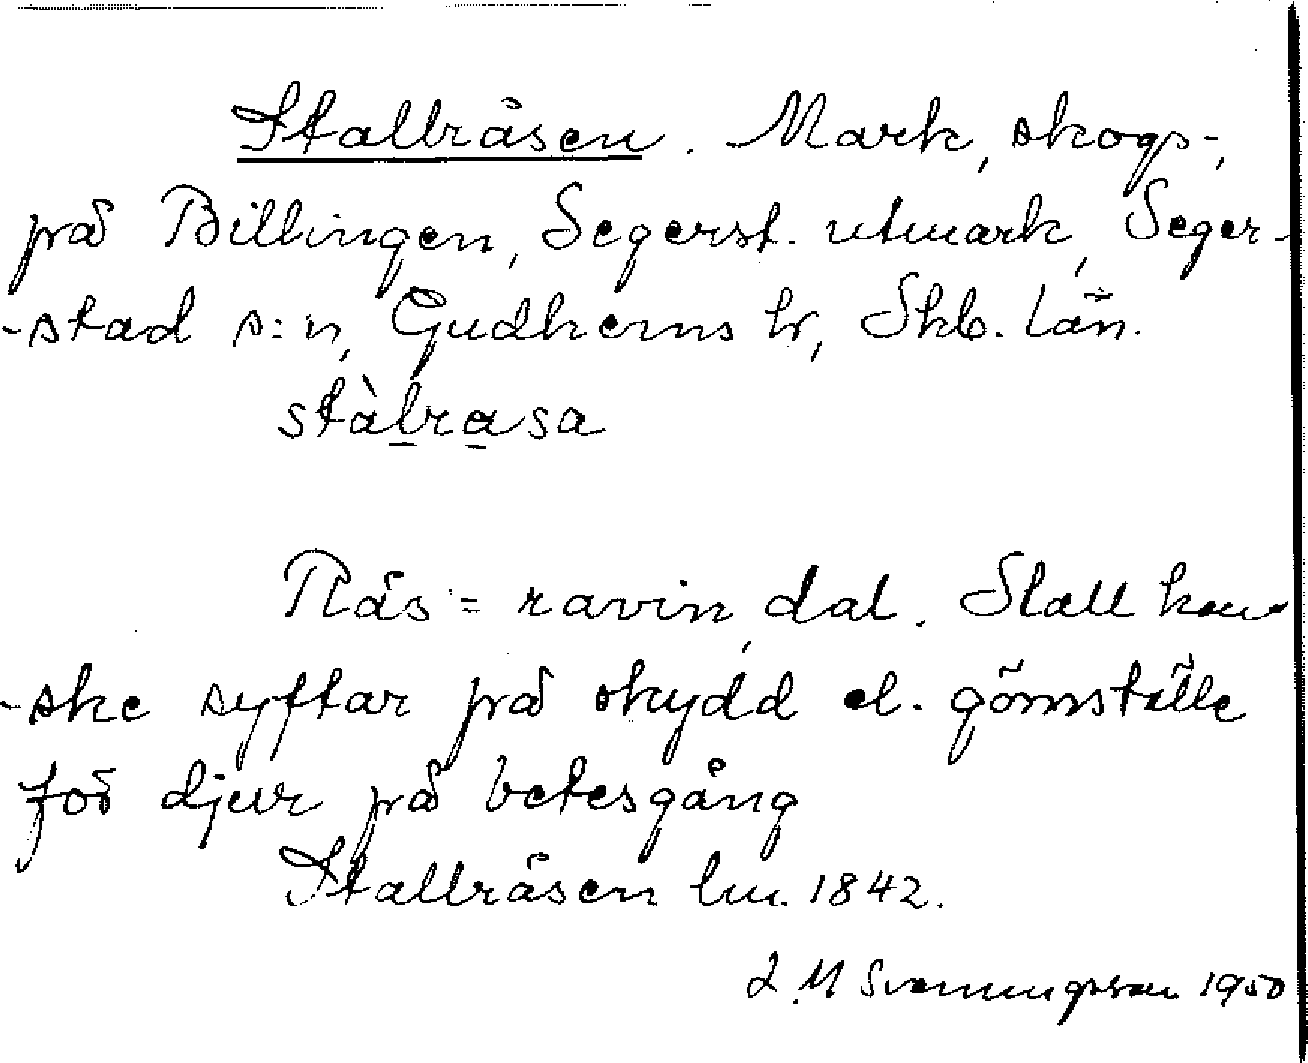 Stallråsen. Mark, skogs-,
på Billingen, Segerst. utmark, Seger-
-stad s:n, Gudhems hr, Skb. län.
stàlrasa
Rås = ravin, dal. Stall kan-
-ske syftar på skydd el. gömställe
för djur på betesgång
Stallråsen lm. 1842.
L M Svenningsson 1950